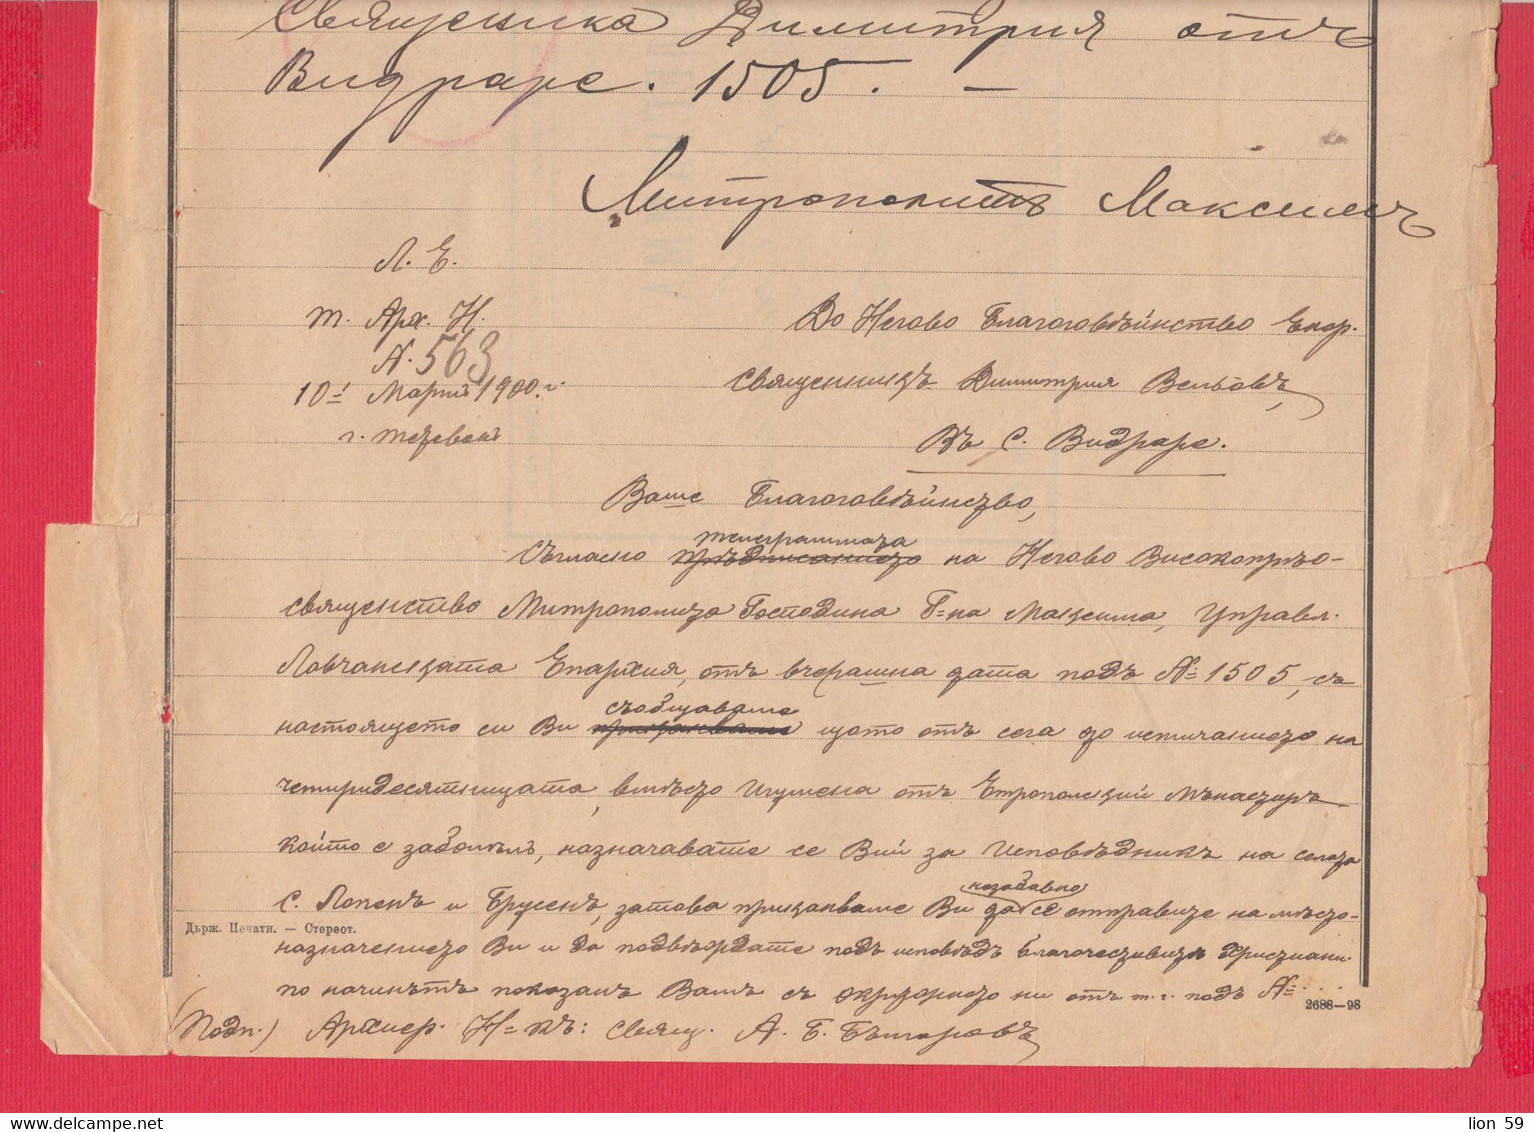 Священика Димитрия отъ
Видраре. 1505. —
Митрополитъ Максимъ
Л. Е.
т. Арх. Н.
N. 563
10й Мартий 1900. г.
г. Тетевенъ
До Негово Благоговѣйнство Екон.
Священникъ Димитрия Вельовъ,
Въ С. Видраре.
Ваше Благоговѣйнство,
телеграммата
Съгласно предписанието на Негово Високопрѣо-
священство Митрополита Господина Г-на Максима, Управл.
Ловчанската Епархия, отъ вчерашна дата подъ № 1505, съ
съобщаваме
настоящето си Ви приканваме щото отъ сега до истичанието на
четиридесятницата, вмѣсто Игумена отъ Етрополский Мънастиръ
който е заболѣлъ, назначавате се Вий за Исповѣдникъ на селата
незабавно
С. Лопенъ и Брусенъ, затова приканваме Ви да се отправите на мѣсто-
назначението Ви и да подвѣрждате подъ исповѣдъ благочестивитѣ Христиани
по начинътъ показанъ Вамъ съ окружното ни отъ т. г. подъ №...
(Подп.) Архиер. Н-къ: Свящ. А. Б. Българовъ
Държ. Печатн. — Стереот.
2688—98
lion 59